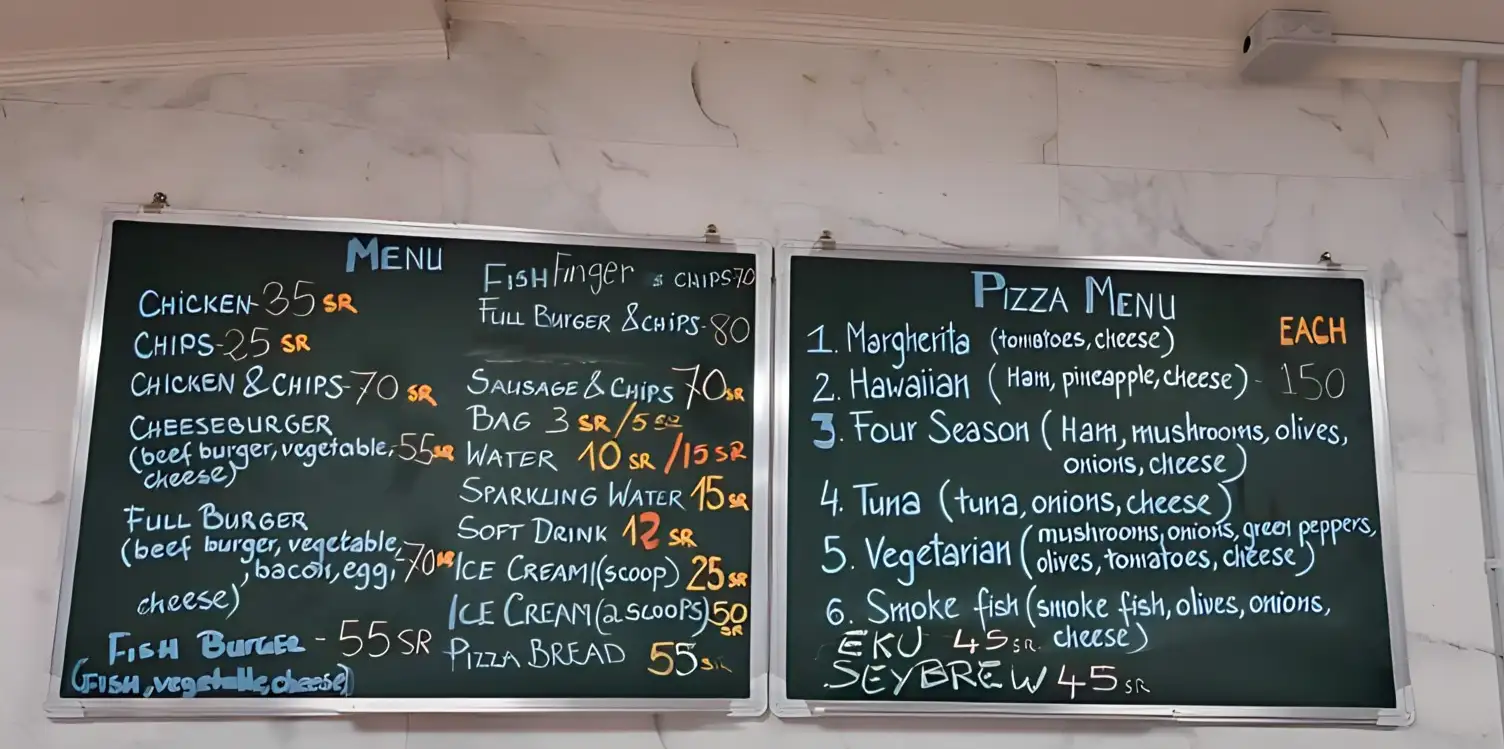 MENU
CHICKEN-35 SR
CHIPS-25 SR
CHICKEN & CHIPS-70 SR
CHEESEBURGER
(beef burger, vegetable, -55 SR
cheese)
FULL BURGER
(beef burger, vegetable, -70 SR
, bacon, egg,
cheese)
FISH BURGER - 55 SR
(FISH, vegetable, cheese)
FISH Finger & CHIPS-70
FULL BURGER & CHIPS-80
SAUSAGE & CHIPS 70 SR
BAG 3 SR/5 SR
WATER 10 SR /15 SR
SPARKLING WATER 15 SR
SOFT DRINK 12 SR
ICE CREAM 1(SCOOP) 25 SR
ICE CREAM (2 SCOOPS) 50 SR
PIZZA BREAD 55 SR
PIZZA MENU
EACH
1. Margherita (tomatoes, cheese)
2. Hawaiian (Ham, pineapple, cheese) - 150
3. Four Season (Ham, mushrooms, olives,
onions, cheese)
4. Tuna (tuna, onions, cheese)
5. Vegetarian (mushrooms, onions, green peppers,
olives, tomatoes, cheese)
6. Smoke fish (smoke fish, olives, onions,
cheese)
EKU 45 SR
SEYBREW 45 SR